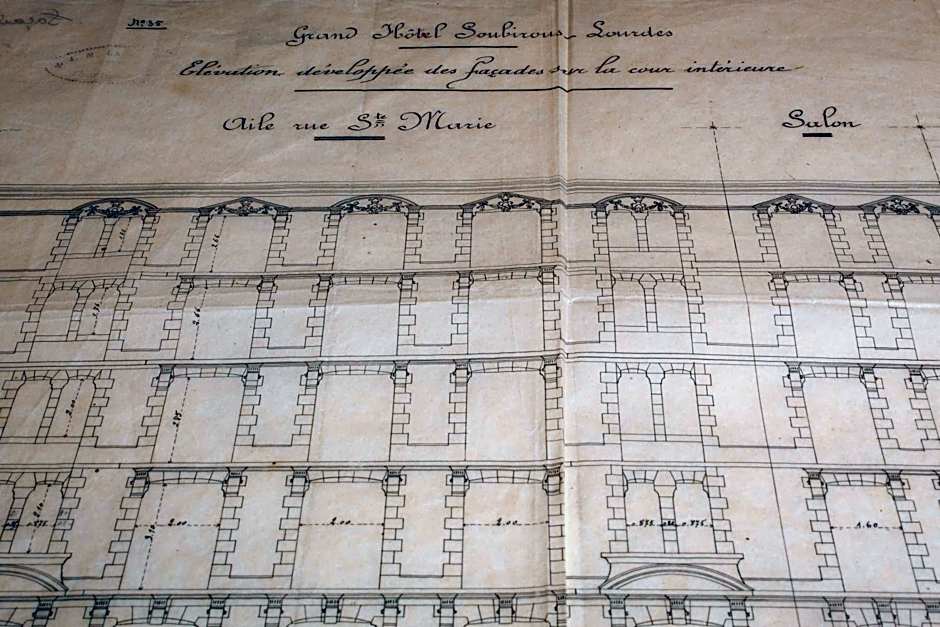 Nº 35
Grand Hôtel Soubirous_ Lourdes
Elévation développée des façades sur la cour intérieure
Aile rue Ste Marie
Salon
2.66
2.66
2.00
2.75
2.10
.875
3.10
2.00
2.00
2.00
.875
.875
1.60